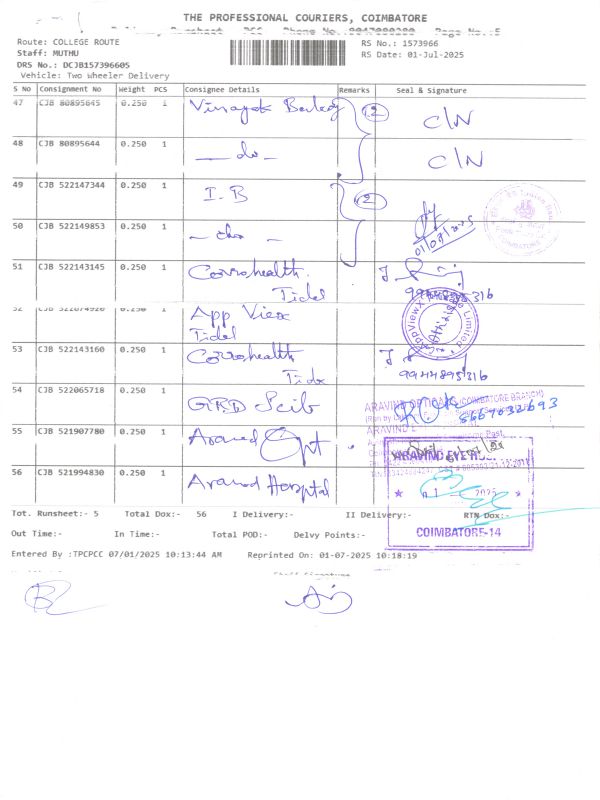 THE PROFESSIONAL COURIERS, COIMBATORE
Route: COLLEGE ROUTE
Staff: MUTHU
DRS No.: DCJB157396605
Vehicle: Two Wheeler Delivery
RS No.: 1573966
RS Date: 01-Jul-2025
S No Consignment No Weight PCS Consignee Details Remarks Seal & Signature
47 CJB 80895645 0.250 1 Vinayak 2 C/N
48 CJB 80895644 0.250 1 — do — C/N
49 CJB 522147344 0.250 1 I.B 2
50 CJB 522149853 0.250 1 — do — 01/07/2025
COIMBATORE
51 CJB 522143145 0.250 1 Corrohealth. Tidel
52 CJB 522074920 0.250 1 App View Tidel
53 CJB 522143160 0.250 1 Corrohealth Tidel 9944895316
54 CJB 522065718 0.250 1 GRD
ARAVIND OPTICALS (COIMBATORE BRANCH)
55 CJB 521907780 0.250 1 Aravind Opt
56 CJB 521994830 0.250 1 Aravind Hospital
ARAVIND EYE HOSPITAL
COIMBATORE-14
Tot. Runsheet:- 5 Total Dox:- 56 I Delivery:- II Delivery:- RTN Dox:-
Out Time:- In Time:- Total POD:- Delvy Points:-
Entered By :TPCPCC 07/01/2025 10:13:44 AM Reprinted On: 01-07-2025 10:18:19